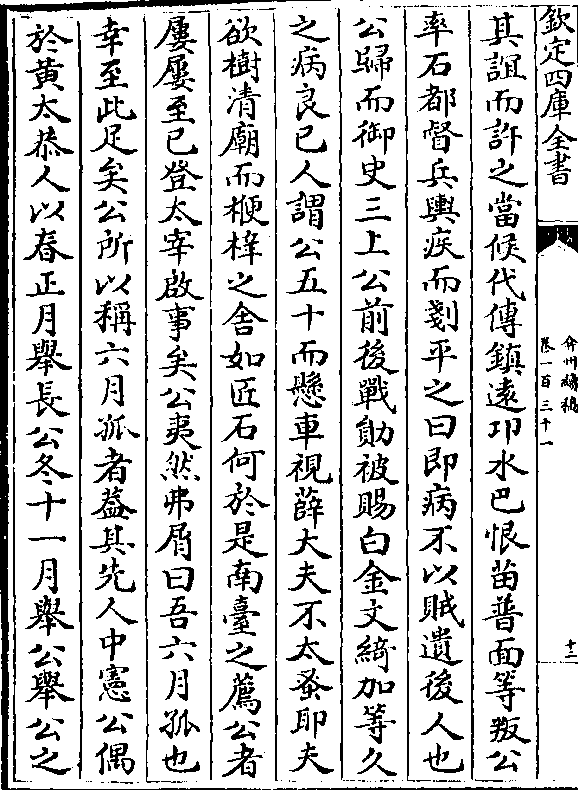 欽定四庫全書
弇州續稿
卷一百三十一
十二
其誼而許之當候代傳鎮遠卭水巴恨苗普面等叛公
率石都督兵輿疾而剗平之曰即病不以賊遺後人也
公歸而御史三上公前後戰勛被賜白金文綺加等久
之病良已人謂公五十而懸車視薛大夫不太蚤耶夫
欲樹清廟而楩樟之舍如匠石何於是南臺之薦公者
屢屢至已登太宰啟事矣公夷然弗屑曰吾六月孤也
幸至此足矣公所以稱六月孤者葢其先人中憲公偶
於黃太恭人以春正月舉長公冬十一月舉公舉公之